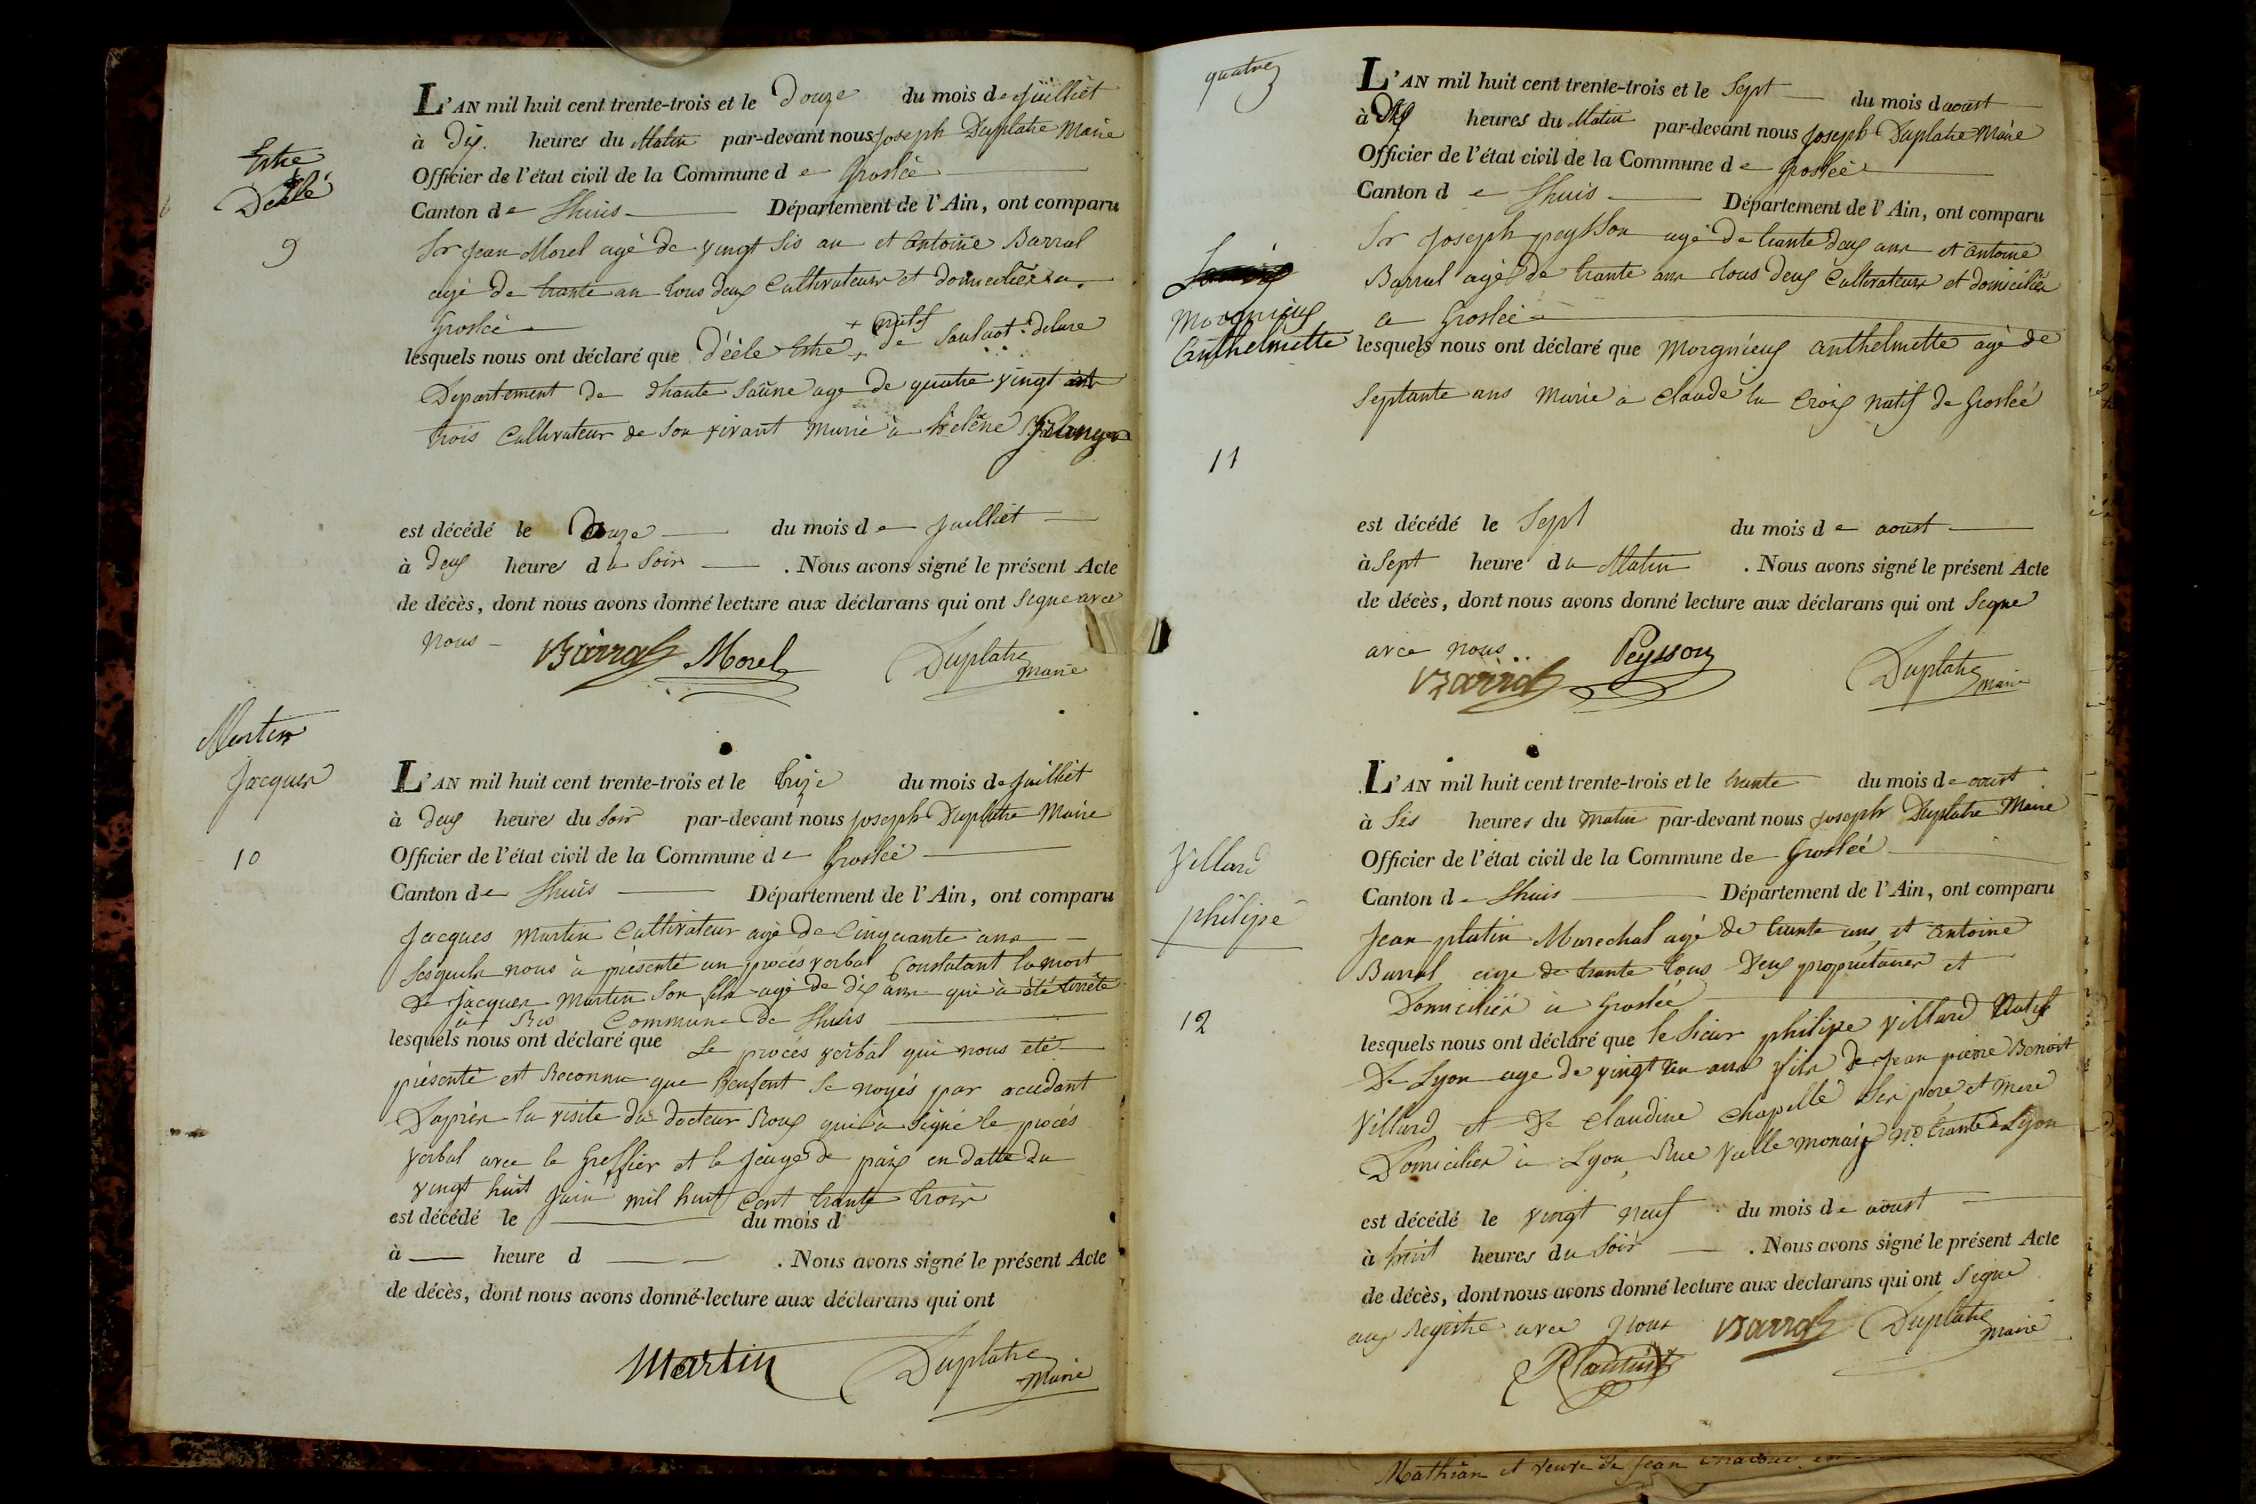 Estre
Déélé
9
L'AN mil huit cent trente-trois et le Douze du mois de Juilliet
à Dix heures du Matin par-devant nous Joseph Duplatre Maire
Officier de l'état civil de la Commune de Groslée
Canton de Lhuis Département de l'Ain, ont comparu
Sr Jean Morel agé de vingt Sis an et Antoine Barral
agé de trante an tous deux Cultivateur et domicilier a
Groslée
lesquels nous ont déclaré que Déèle Estre + natif de
Departement de dhaute Saûne age de quatre vingt
trois Cultivateur de Son vivant Marié à hélène
est décédé le Douze du mois de Juilliet
à Deux heures du Soir. Nous avons signé le présent Acte
de décès, dont nous avons donné lecture aux déclarans qui ont Segne avec
nous
Barral Morel Duplatre
Maire
Martin
Jacques
10
L'AN mil huit cent trente-trois et le treize du mois de Juilliet
à Deux heures du Soir par-devant nous Joseph Duplatre Maire
Officier de l'état civil de la Commune de Groslée
Canton de Lhuis Département de l'Ain, ont comparu
Jacques Martin Cultivateur agé de Cinquante ans
Lesquels nous à présenté un procés verbal Constatant la mort
de Jacques Martin Son fils agé de dix ans qui à été
à Commune de Lhuis
lesquels nous ont déclaré que Le procés verbal qui nous eté
présenté est Reconnu que Lenfent Se noyés par accidant
Daprès la visite du docteur Roux qui à Signé le procés
verbal avec le Greffier et le Jeuge de paix en datte du
vingt huit Juin mil huit Cent trante trois
est décédé le du mois d
à heure d . Nous avons signé le présent Acte
de décès, dont nous avons donné lecture aux déclarans qui ont
Martin Duplatre
Maire
quatre
Morgnieux
Anthelmette
11
L'AN mil huit cent trente-trois et le Sept du mois d aoust
à heures du Matin par-devant nous Joseph Duplatre Maire
Officier de l'état civil de la Commune de Groslée
Canton de Lhuis Département de l'Ain, ont comparu
Sr Joseph peysson agé de trante deux ans et Antoine
Barral agé de trante ans tous deux Cultivateurs et domicilier
a Groslée
lesquels nous ont déclaré que Morgnieux anthelmette agé de
Septante ans Marié a Claude la Croix natif de Groslée
est décédé le Sept du mois de aoust
à Sept heure du Matin. Nous avons signé le présent Acte
de décès, dont nous avons donné lecture aux déclarans qui ont Segne
avec nous
Barral Peysson Duplatre
Maire
Villard
philipe
12
L'AN mil huit cent trente-trois et le trante du mois de aoust
à Sis heures du Matin par-devant nous Joseph Duplatre Maire
Officier de l'état civil de la Commune de Groslée
Canton de Lhuis Département de l'Ain, ont comparu
Jean platin Marechal agé de trante ans et Antoine
Barral age de trante tous deux propriétaires et
Domicilier à Groslée
lesquels nous ont déclaré que le Sieur philipe Villard Natif
De Lyon age de vingt un ans fils de Jean pierre Benoit
Villard et De Claudine Chapelle Ses pere et Mere
Domicilier à Lyon Rue Valle monaix no trante a Lyon
est décédé le vingt neuf du mois de aoust
à huit heures du Soir. Nous avons signé le présent Acte
de décès, dont nous avons donné lecture aux declarans qui ont Segne
aux Registre avec nous Barral Duplatre
Maire
Mathian et veuve de Jean